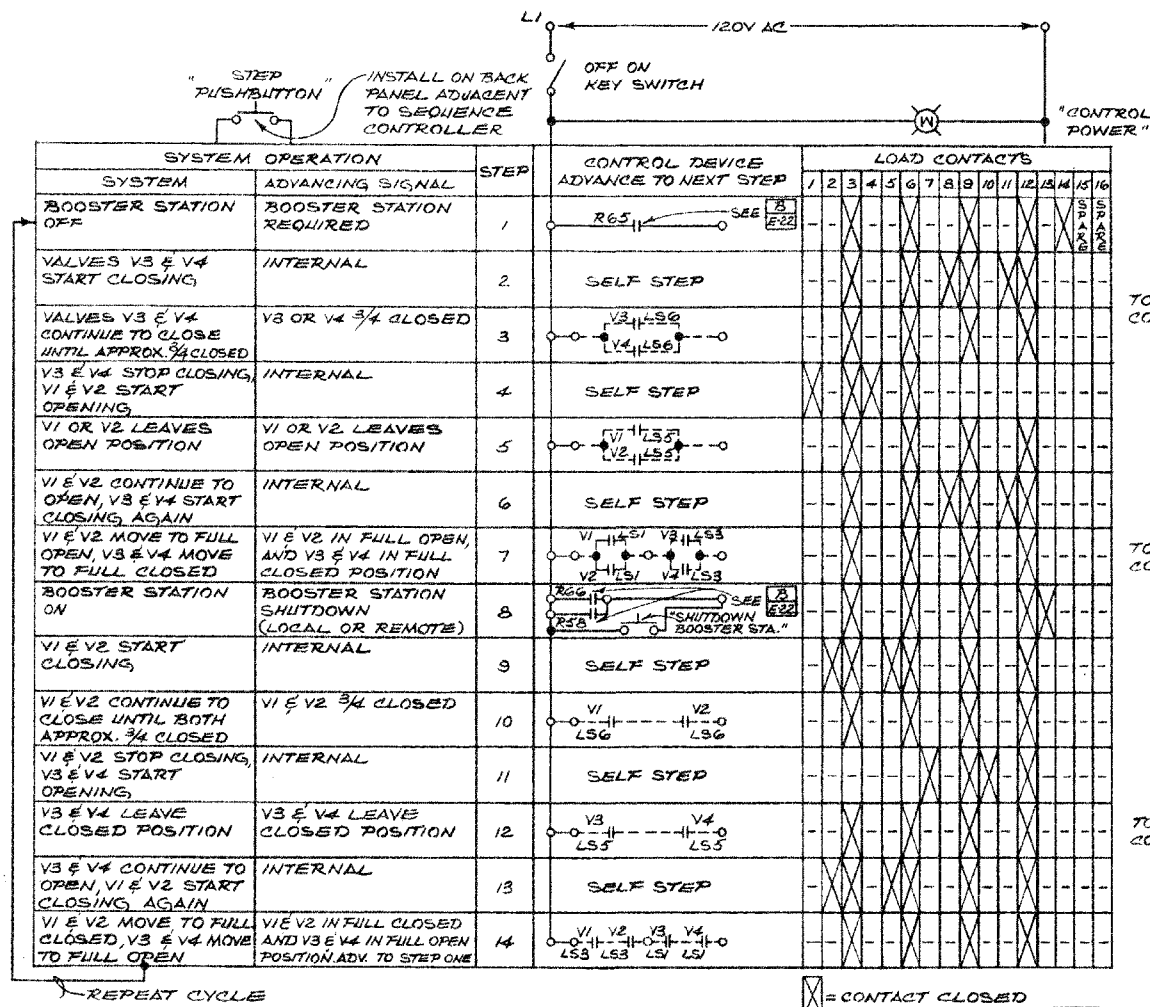 L1
120V AC
OFF ON
KEY SWITCH
" STEP
PUSHBUTTON "
INSTALL ON BACK
PANEL ADJACENT
TO SEQUENCE
CONTROLLER
M
"CONTROL
POWER"
SYSTEM OPERATION
STEP
CONTROL DEVICE
ADVANCE TO NEXT STEP
LOAD CONTACTS
SYSTEM
ADVANCING SIGNAL
1 2 3 4 5 6 7 8 9 10 11 12 13 14 15 16
BOOSTER STATION
OFF
BOOSTER STATION
REQUIRED
1
R65
SEE B
E-22
SPARE
SPARE
VALVES V3 & V4
START CLOSING
INTERNAL
2
SELF STEP
VALVES V3 & V4
CONTINUE TO CLOSE
UNTIL APPROX. 3/4 CLOSED
V3 OR V4 3/4 CLOSED
3
V3 LS6
V4 LS6
TO
CO
V3 & V4 STOP CLOSING,
V1 & V2 START
OPENING
INTERNAL
4
SELF STEP
V1 OR V2 LEAVES
OPEN POSITION
V1 OR V2 LEAVES
OPEN POSITION
5
V1 LS5
V2 LS5
V1 & V2 CONTINUE TO
OPEN, V3 & V4 START
CLOSING AGAIN
INTERNAL
6
SELF STEP
V1 & V2 MOVE TO FULL
OPEN, V3 & V4 MOVE
TO FULL CLOSED
V1 & V2 IN FULL OPEN,
AND V3 & V4 IN FULL
CLOSED POSITION
7
V1 LS1 V3 LS3
V2 LS1 V4 LS3
TO
CO
BOOSTER STATION
ON
BOOSTER STATION
SHUTDOWN
(LOCAL OR REMOTE)
8
R66
R58
SEE B
E-22
"SHUTDOWN
BOOSTER STA."
V1 & V2 START
CLOSING
INTERNAL
9
SELF STEP
V1 & V2 CONTINUE TO
CLOSE UNTIL BOTH
APPROX. 3/4 CLOSED
V1 & V2 3/4 CLOSED
10
V1 V2
LS6 LS6
V1 & V2 STOP CLOSING,
V3 & V4 START
OPENING
INTERNAL
11
SELF STEP
V3 & V4 LEAVE
CLOSED POSITION
V3 & V4 LEAVE
CLOSED POSITION
12
V3 V4
LS5 LS5
TO
CO
V3 & V4 CONTINUE TO
OPEN, V1 & V2 START
CLOSING AGAIN
INTERNAL
13
SELF STEP
V1 & V2 MOVE TO FULL
CLOSED, V3 & V4 MOVE
TO FULL OPEN
V1 & V2 IN FULL CLOSED
AND V3 & V4 IN FULL OPEN
POSITION. ADV. TO STEP ONE
14
V1 V2 V3 V4
LS3 LS3 LS1 LS1
REPEAT CYCLE
X = CONTACT CLOSED